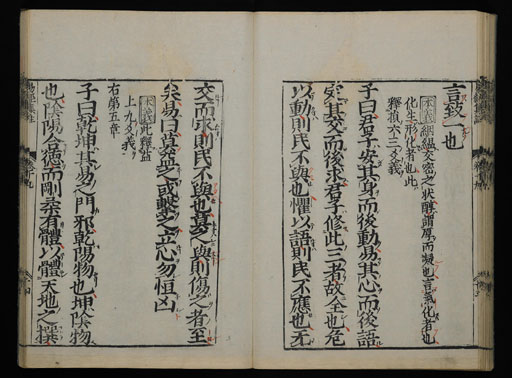 言致一也
本義絪緼交密之狀醇謂厚而凝也言氣化者也
化生形化者也此
釋損六三爻義
子曰君子安其身而後動易其心而後語
定其交而後求君子修此三者故全也危
以動則民不與也懼以語則民不應也无
交而求則民不與也莫之與則傷之者至
矣易曰莫益之或擊之立心勿恒凶
本義此釋益
上九爻義
右第五章
子曰乾坤其易之門邪乾陽物也坤陰物
也陰陽合德而剛柔有體以體天地之撰